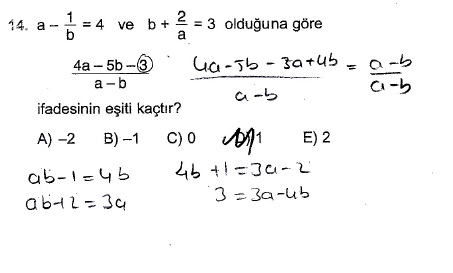 14. a − 1/b = 4 ve b + 2/a = 3 olduğuna göre
(4a − 5b − 3)/(a − b)
(4a − 5b − 3a + 4b)/(a − b) = (a − b)/(a − b)
ifadesinin eşiti kaçtır?
A) −2 B) −1 C) 0 D) 1 E) 2
ab − 1 = 4b
ab + 2 = 3a
4b + 1 = 3a − 2
3 = 3a − 4b